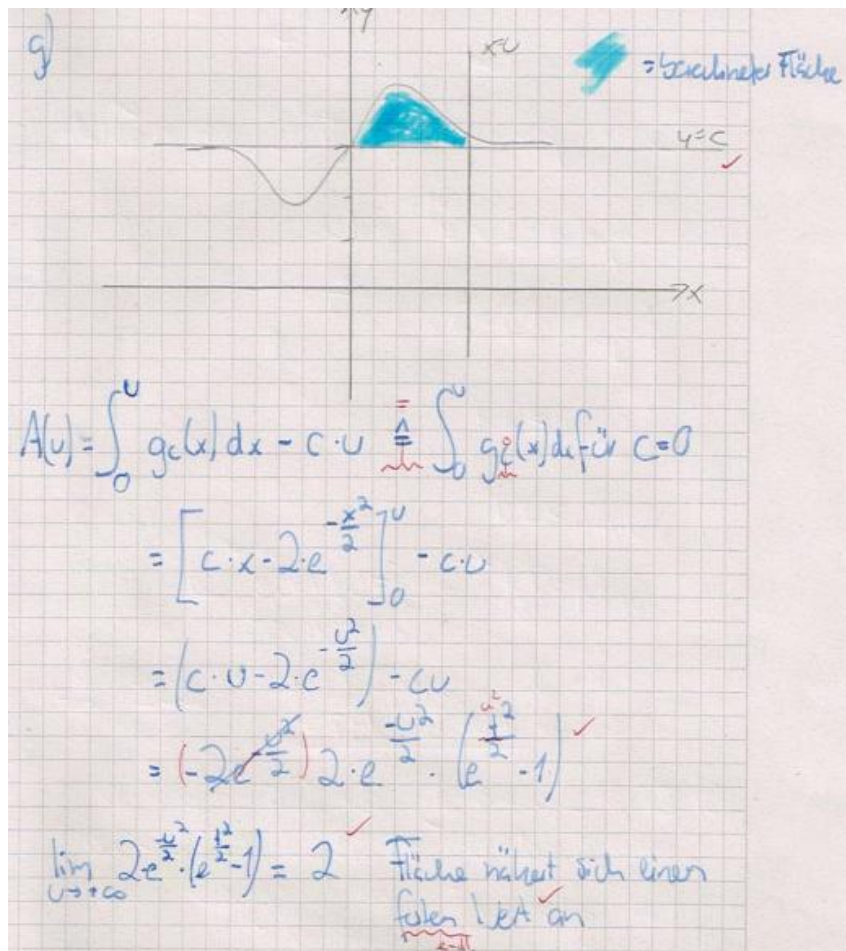 g)
y
x=u
= berechnete Fläche
y=c ✓
x
A(u) = ∫₀ᵁ g_c(x) dx - c·u ≙ ∫₀ᵁ g_c(x) dx für c=0
=
= [c·x - 2·e^(-x²/2)]₀ᵁ - c·u
= (c·u - 2·e^(-u²/2)) - cu
= (-2e^(-u²/2)) 2·e^(-u²/2) · (e^(t²/2) - 1) ✓
u²
lim u→+∞ 2·e^(-u²/2) · (e^(t²/2) - 1) = 2 ✓ Fläche nähert sich einen
festen Wert ✓ an